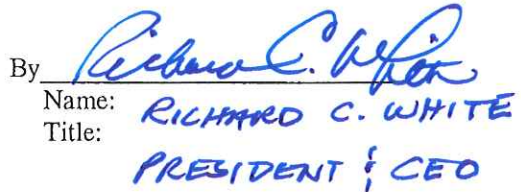 By Richard C. White
Name: RICHARD C. WHITE
Title:
PRESIDENT & CEO